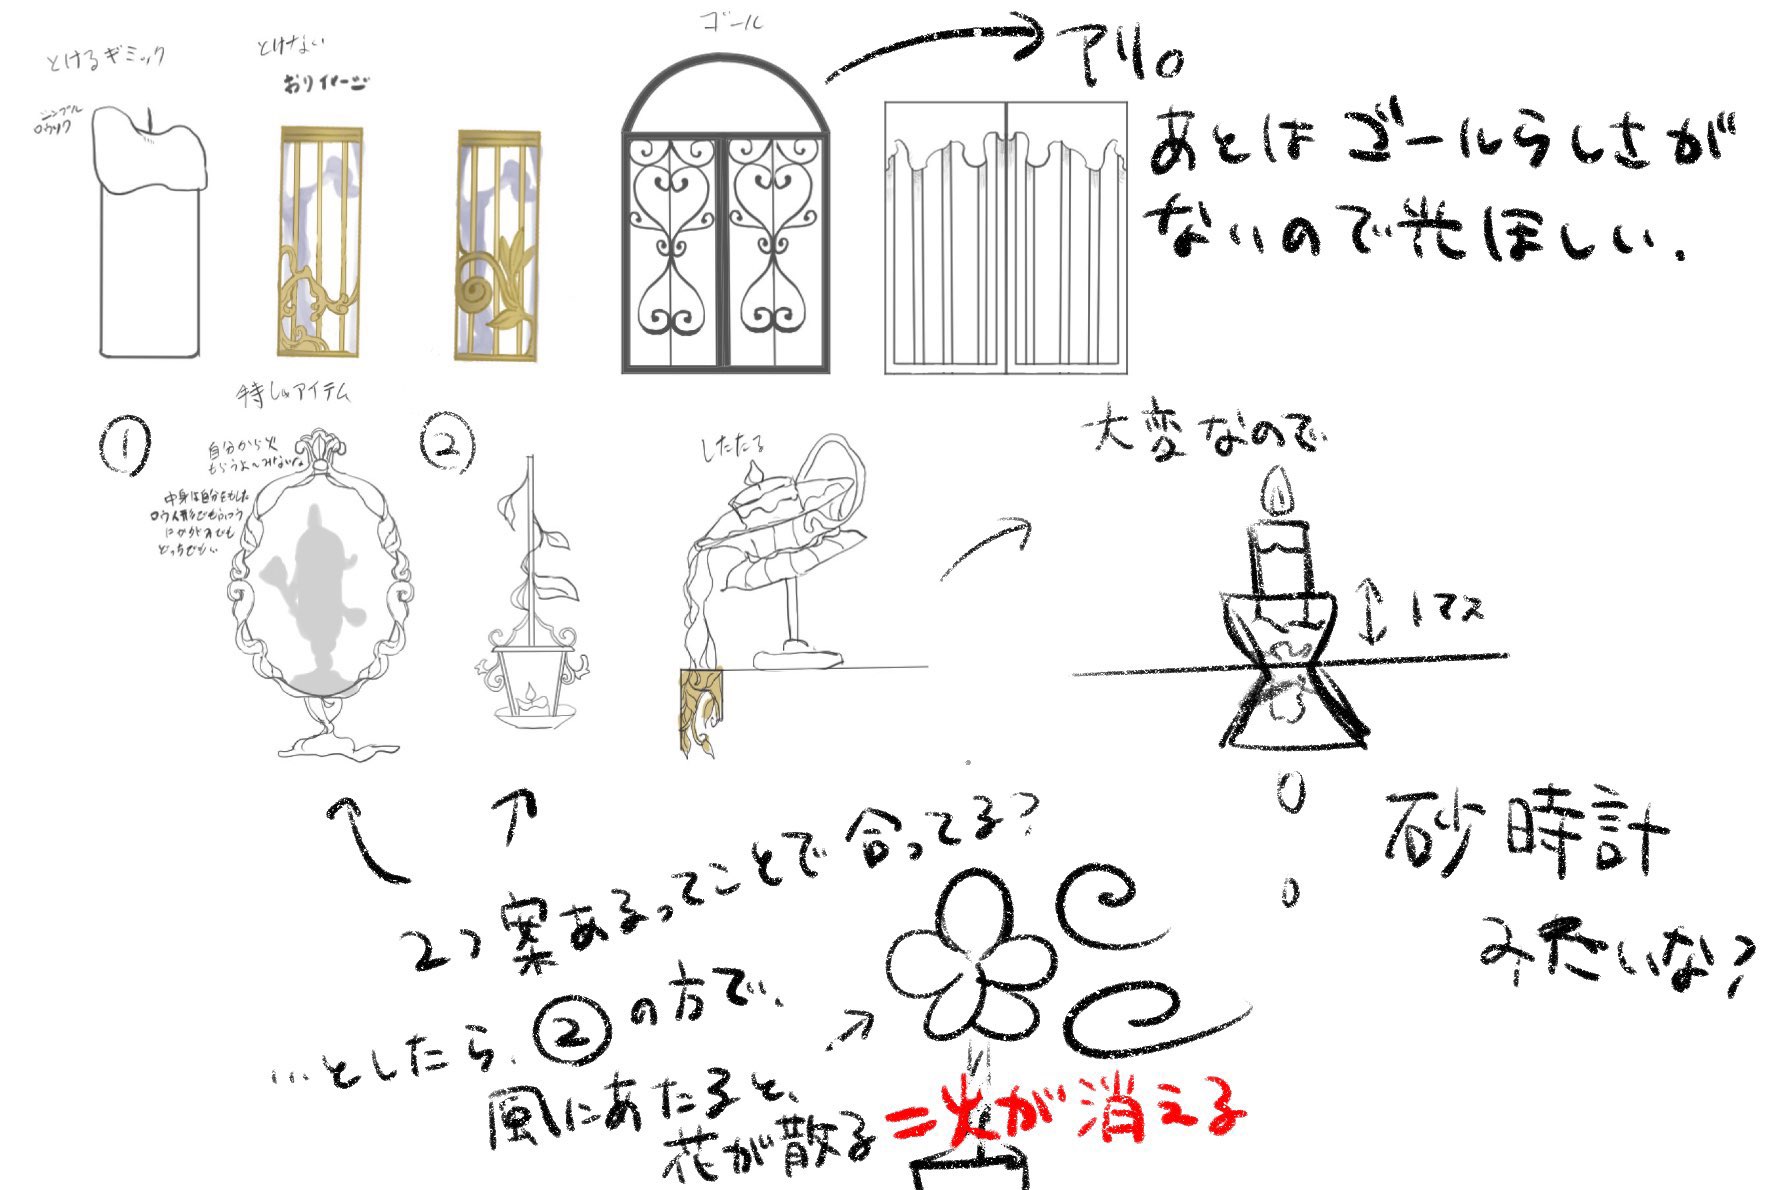 とけるギミック
シンプル
ロウソク
とけない
おりイメージ
ゴール
アリ。
あとはゴールらしさが
ないので光ほしい.
特しゅアイテム
①
自分から火
もらうよ〜みないな
中身は自分をもした
ロウ人形でもふつう
にかがみでも
どっちでもい
②
したたる
大変なので
1マス
砂時計
みたいな?
2つ案あるってことで合ってる?
…としたら、②の方で、
風にあたると、
花が散る=火が消える